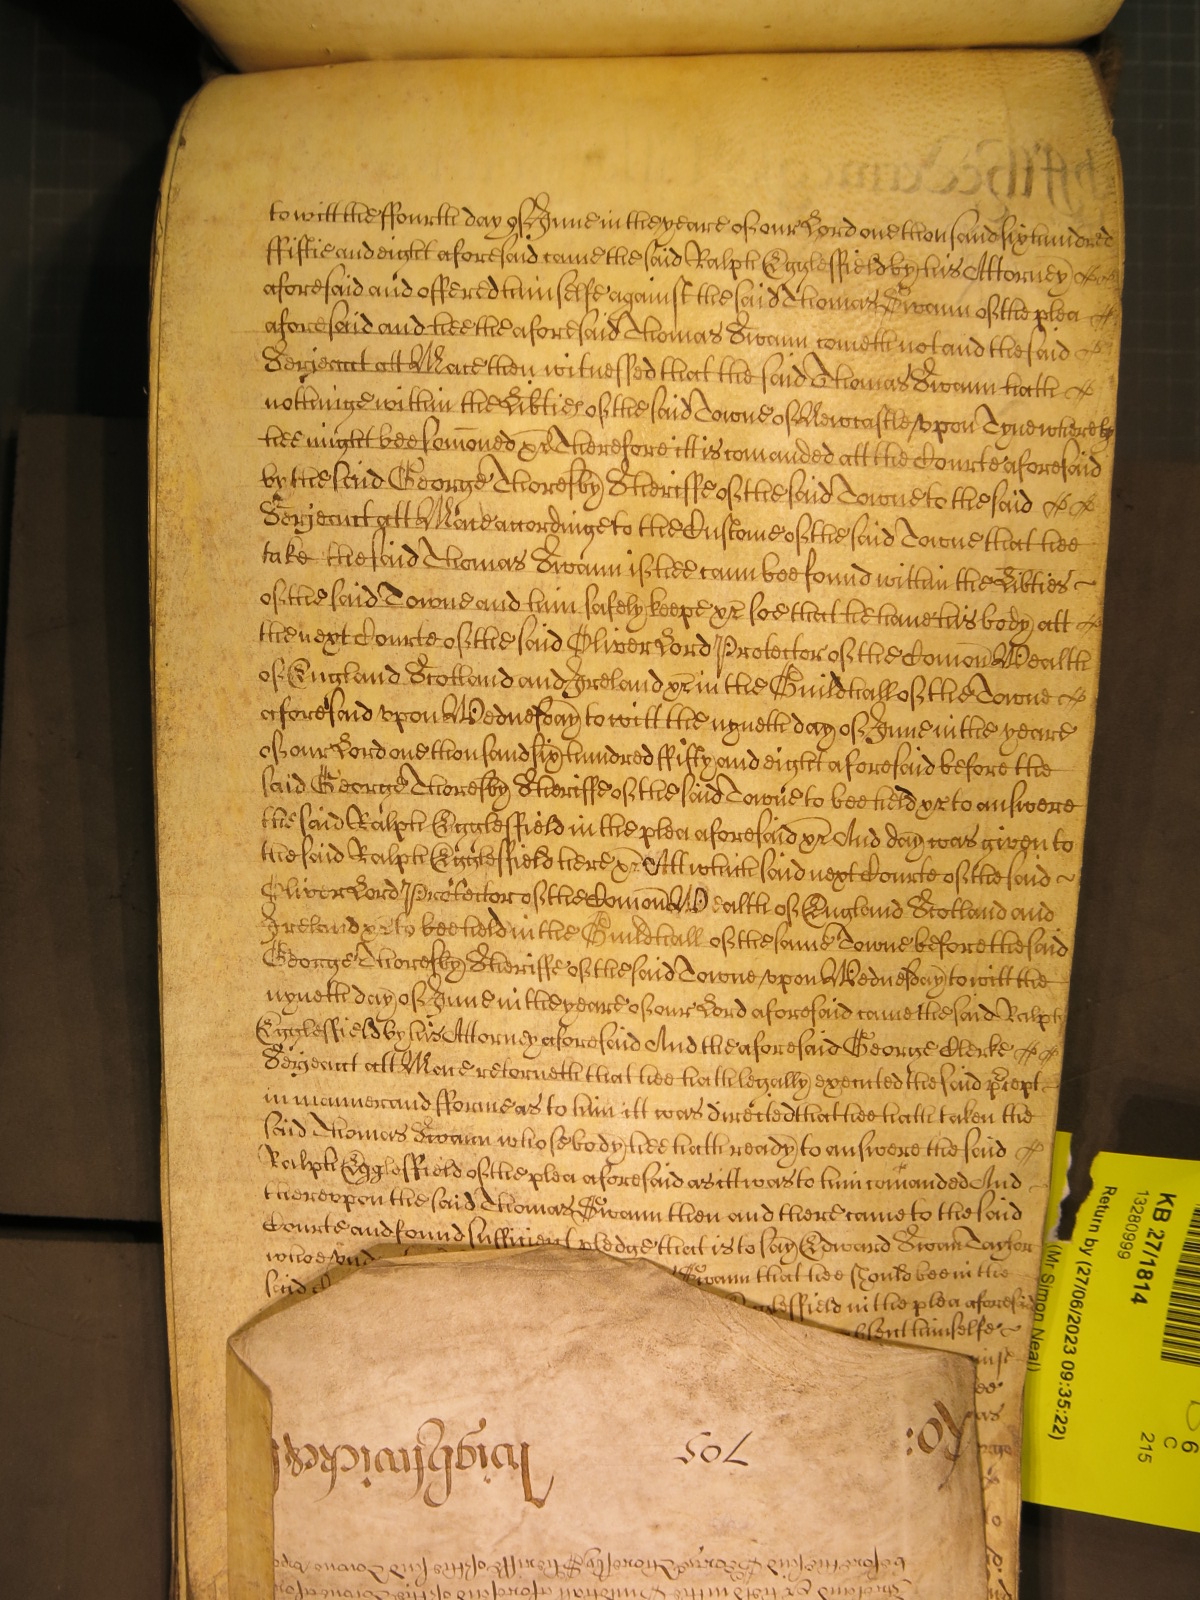 to witt the ffourth day of June in the yeare of our Lord one thousand six hundred
ffiftie and eight aforesaid came the said Ralph Egglesffield by his Attorney
aforesaid and offered himselfe against the said Thomas Swann of the plea
aforesaid and hee the aforesaid Thomas Swann cometh not and the said
Serjeant att Mace then witnessed that the said Thomas Swann hath
nothinge within the Libties of the said Towne of Newcastle upon Tyne whereby
hee might bee somoned &c Therefore itt is comanded att the Courte aforesaid
by the said George Thoresby Sheriffe of the said Towne to the said
Serjeant att Mace accordinge to the Custome of the said Towne that hee
take the said Thomas Swann if hee cann bee found within the Libties
of the said Towne and him safely keepe &c soe that he have his body att
the next Courte of the said Oliver Lord Protector of the Comon Wealth
of England Scotland and Ireland &c in the Guildhall of the Towne
aforesaid upon Wednesday to witt the nyneth day of June in the yeare
of our Lord one thousand six hundred ffifty and eight aforesaid before the
said George Thoresby Sheriffe of the said Towne to bee held &c to answere
the said Ralph Egglesffield in the plea aforesaid &c And day was given to
the said Ralph Egglesffield here &c Att which said next Courte of the said
Oliver Lord Protector of the Comon Wealth of England Scotland and
Ireland &c to bee held in the Guildhall of the same Towne before the said
George Thoresby Sheriffe of the said Towne upon Wednesday to witt the
nyneth day of June in the yeare of our Lord aforesaid came the said Ralph
Egglesffield by his Attorney aforesaid And the aforesaid George Clerke
Serjeant att Mace retorneth that hee hath legally executed the said pcept
in manner and fforme as to him itt was directed that hee hath taken the
said Thomas Swann whose body hee hath ready to answere the said
Ralph Egglesffield of the plea aforesaid as itt was to him comanded And
thereupon the said Thomas Swann then and there came to the said
Courte and found sufficient pledge that is to say Edward Swan Taylor
whoe und Swann that hee should bee in the
said esffield in the plea aforesaid
bsent himselfe
Ro: 705 Wightwicke
KB 27/1814
13280999
Return by (27/06/2023 09:35:22)
(Mr Simon Neal)
6
C
215